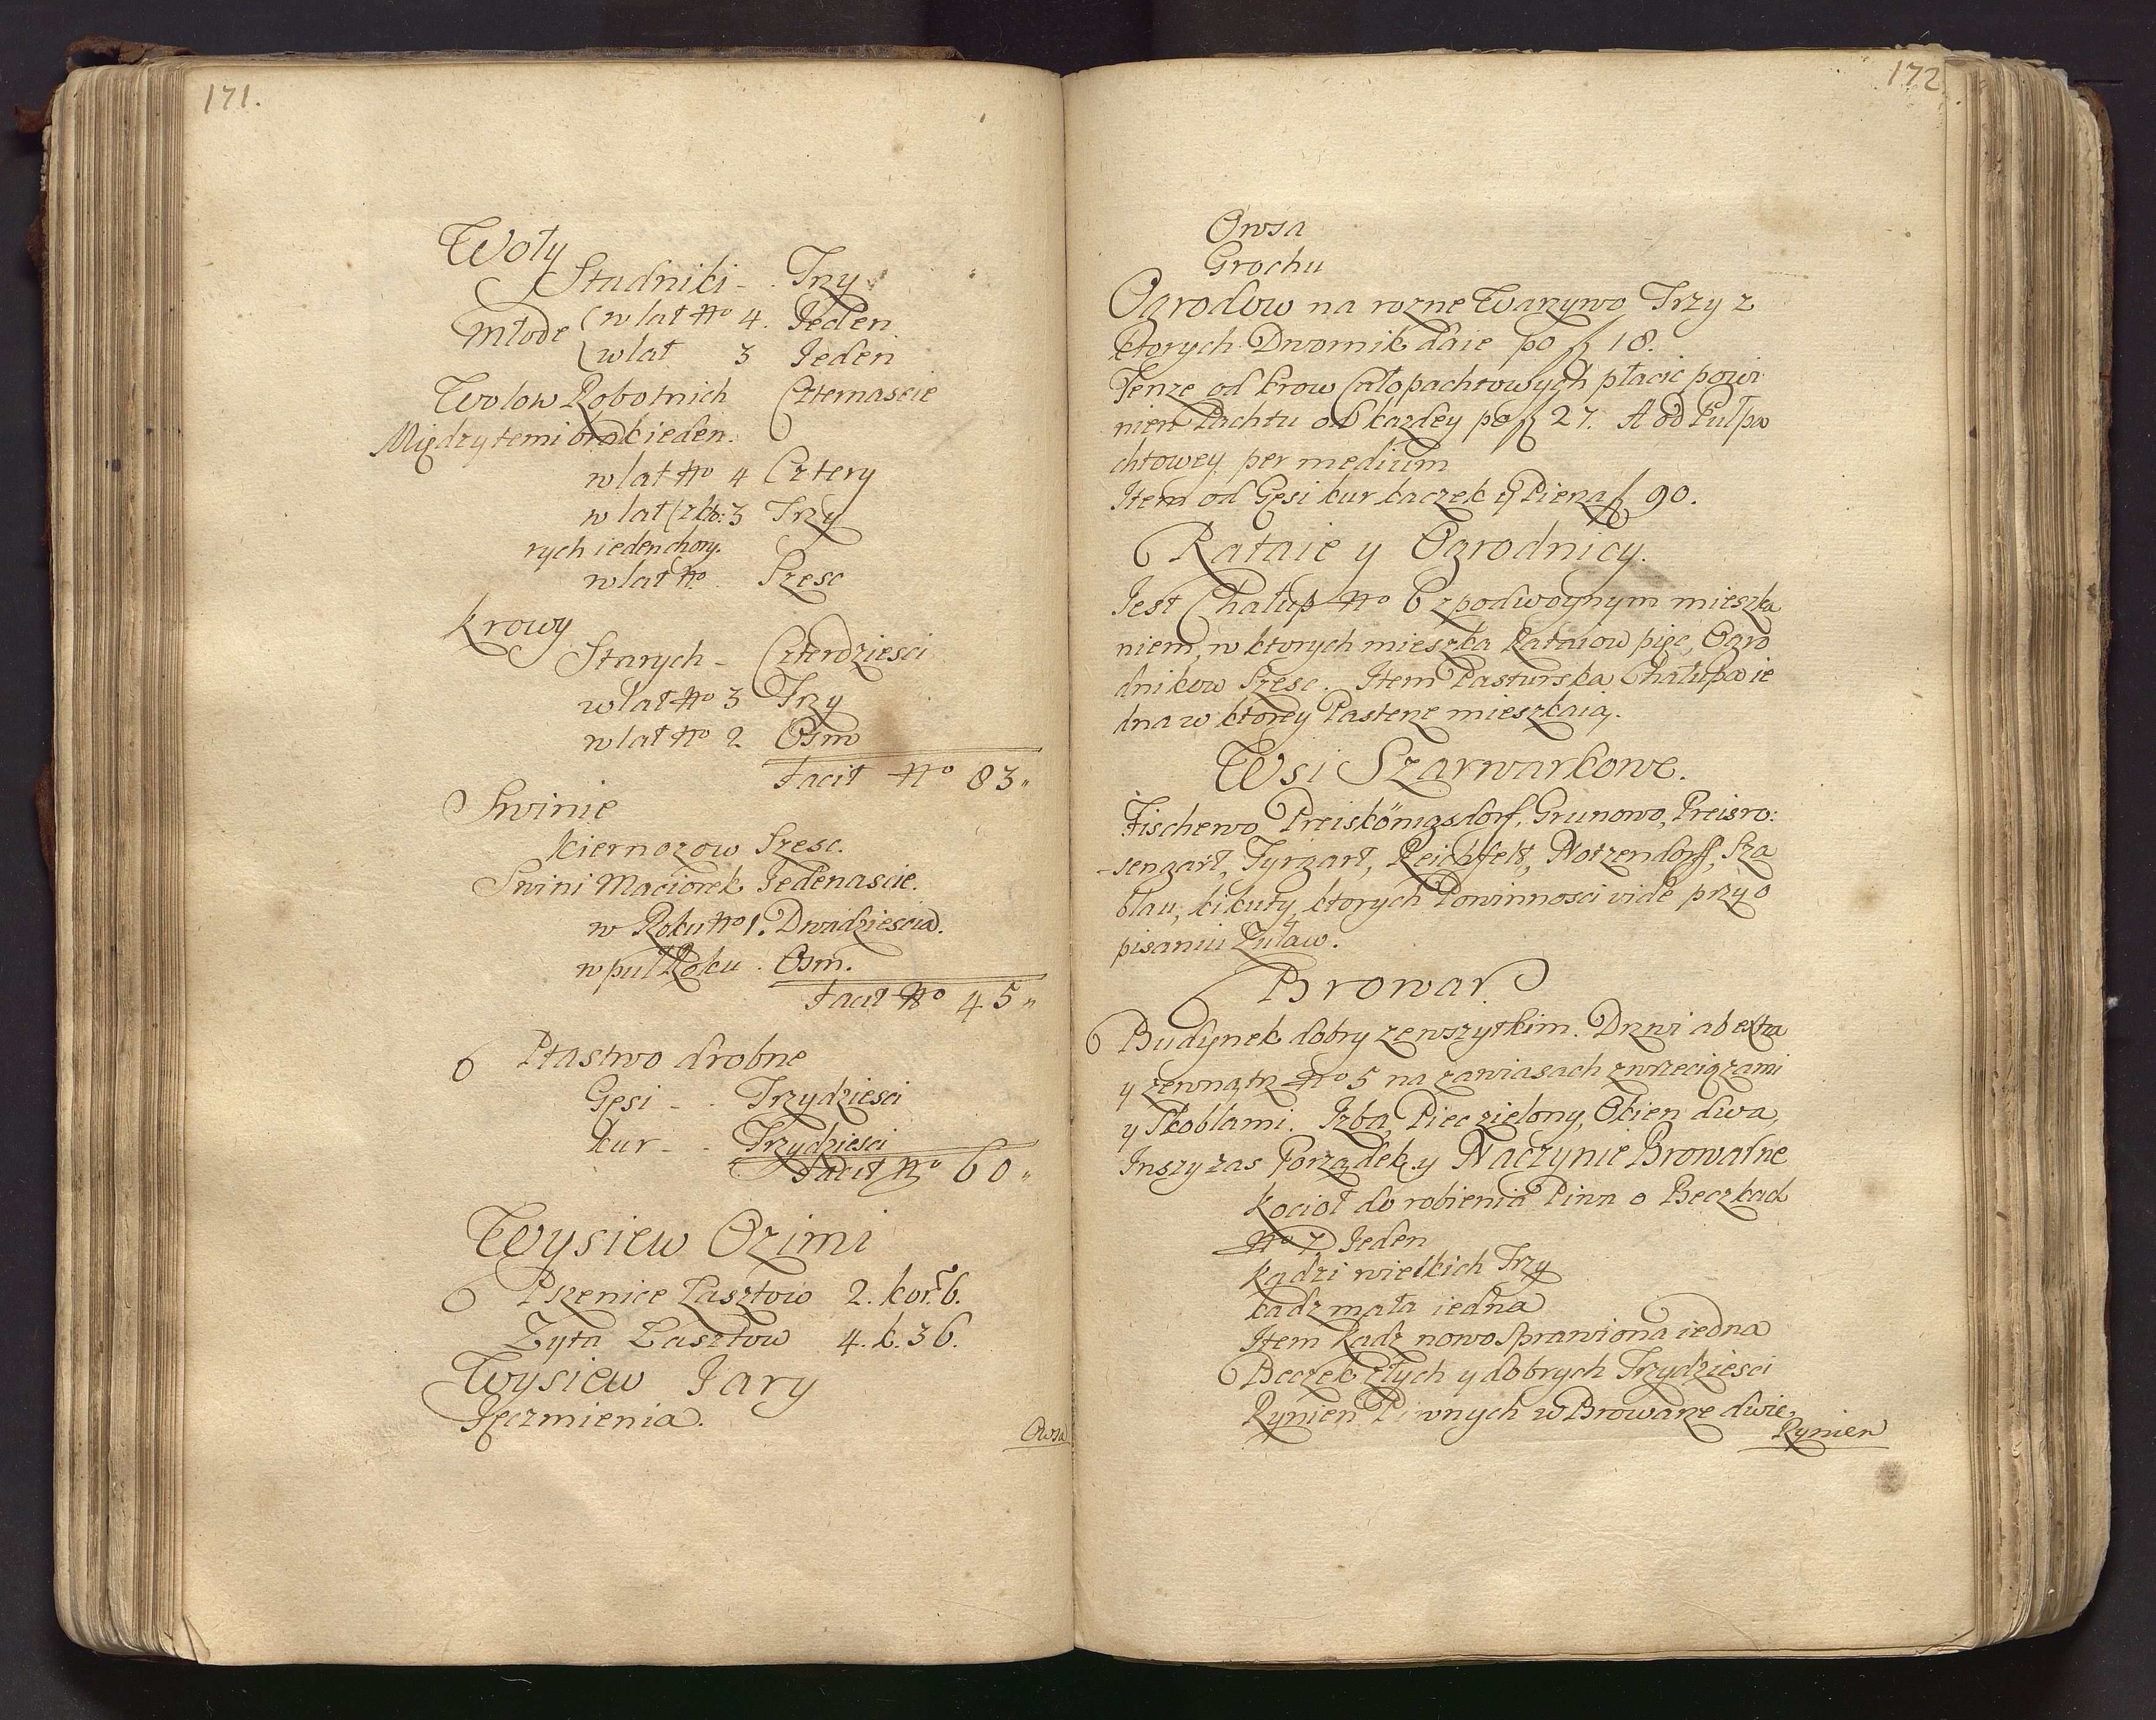 171.
Woły
Stadniki - . Trzy
Młode (w lat No 4. Jeden
(w lat 3 Jeden
Wolow Robotnich Czternascie
Między temi brak ieden.
w lat No 4 Cztery
w lat (z kto: 3 Trzy
rych ieden chory.
w lat No. Szesc
Krowy
Starych - Czterdziesci
w lat No 3 Trzy
w lat No 2 Osm
Facit No 83 "
Swinie
Kiernozow Szesc.
Swini Maciorek Jedenascie.
w Roku No 1. Dwadziescia.
w puł Roku . Osm.
Facit No 45 "
Ptastwo drobne
Gęsi - . Trzydziesci
Kur - . Trzydziesci
Facit No 60 "
Wysiew Ozimi
Pszenice Łasztow 2. kor. 6.
Zyta Łasztow 4. k. 36.
Wysiew Jary
Jęczmienia.
Owsa
172
Owsa
Grochu
Ogrodow na rozne Warzywo Trzy z
ktorych Dwornik daie po f 18.
Tenze od krow Całopachtowych płacic powi
nien Pachtu od kazdey po f 27. A od Pułpa
chtowey per medium
Item od Gęsi kur kaczek y Pierza f 90.
Rataie y Ogrodnicy.
Jest Chałup No 6 z podwoynym mieszka
niem, w ktorych mieszka Rataiow pięc, Ogro
dnikow Szesc. Item Pasturska Chałupa ie
dna w ktorey Pasterze mieszkaią.
Wsi Szarwarkowe.
Fischewo, Preiskönigsdorf, Grunowo, Preisro:
-sengart, Tyrgart, Reichfelt, Notzendorff, Sza
blau, kikuty, ktorych Powinnosci vide przy o
pisaniu Zuław.
Browar
Budynek dobry ze wszytkim. Drzwi ab extra
y zewnątrz No 5 na zawiasach z wrzeciązami
y Skoblami. Izba, Piec zielony, Okien dwa,
Inszy zas Porządek y Naczynie Browarne
Kocioł do robienia Piwa o Beczkach
No 7 Jeden
Kadzi wielkich Trzy
kadz mała iedna
Item Kadz nowo sprawiona iedna
Beczek złych y dobrych Trzydziesci
Rynien Piwnych w Browarze dwie,
Rynien